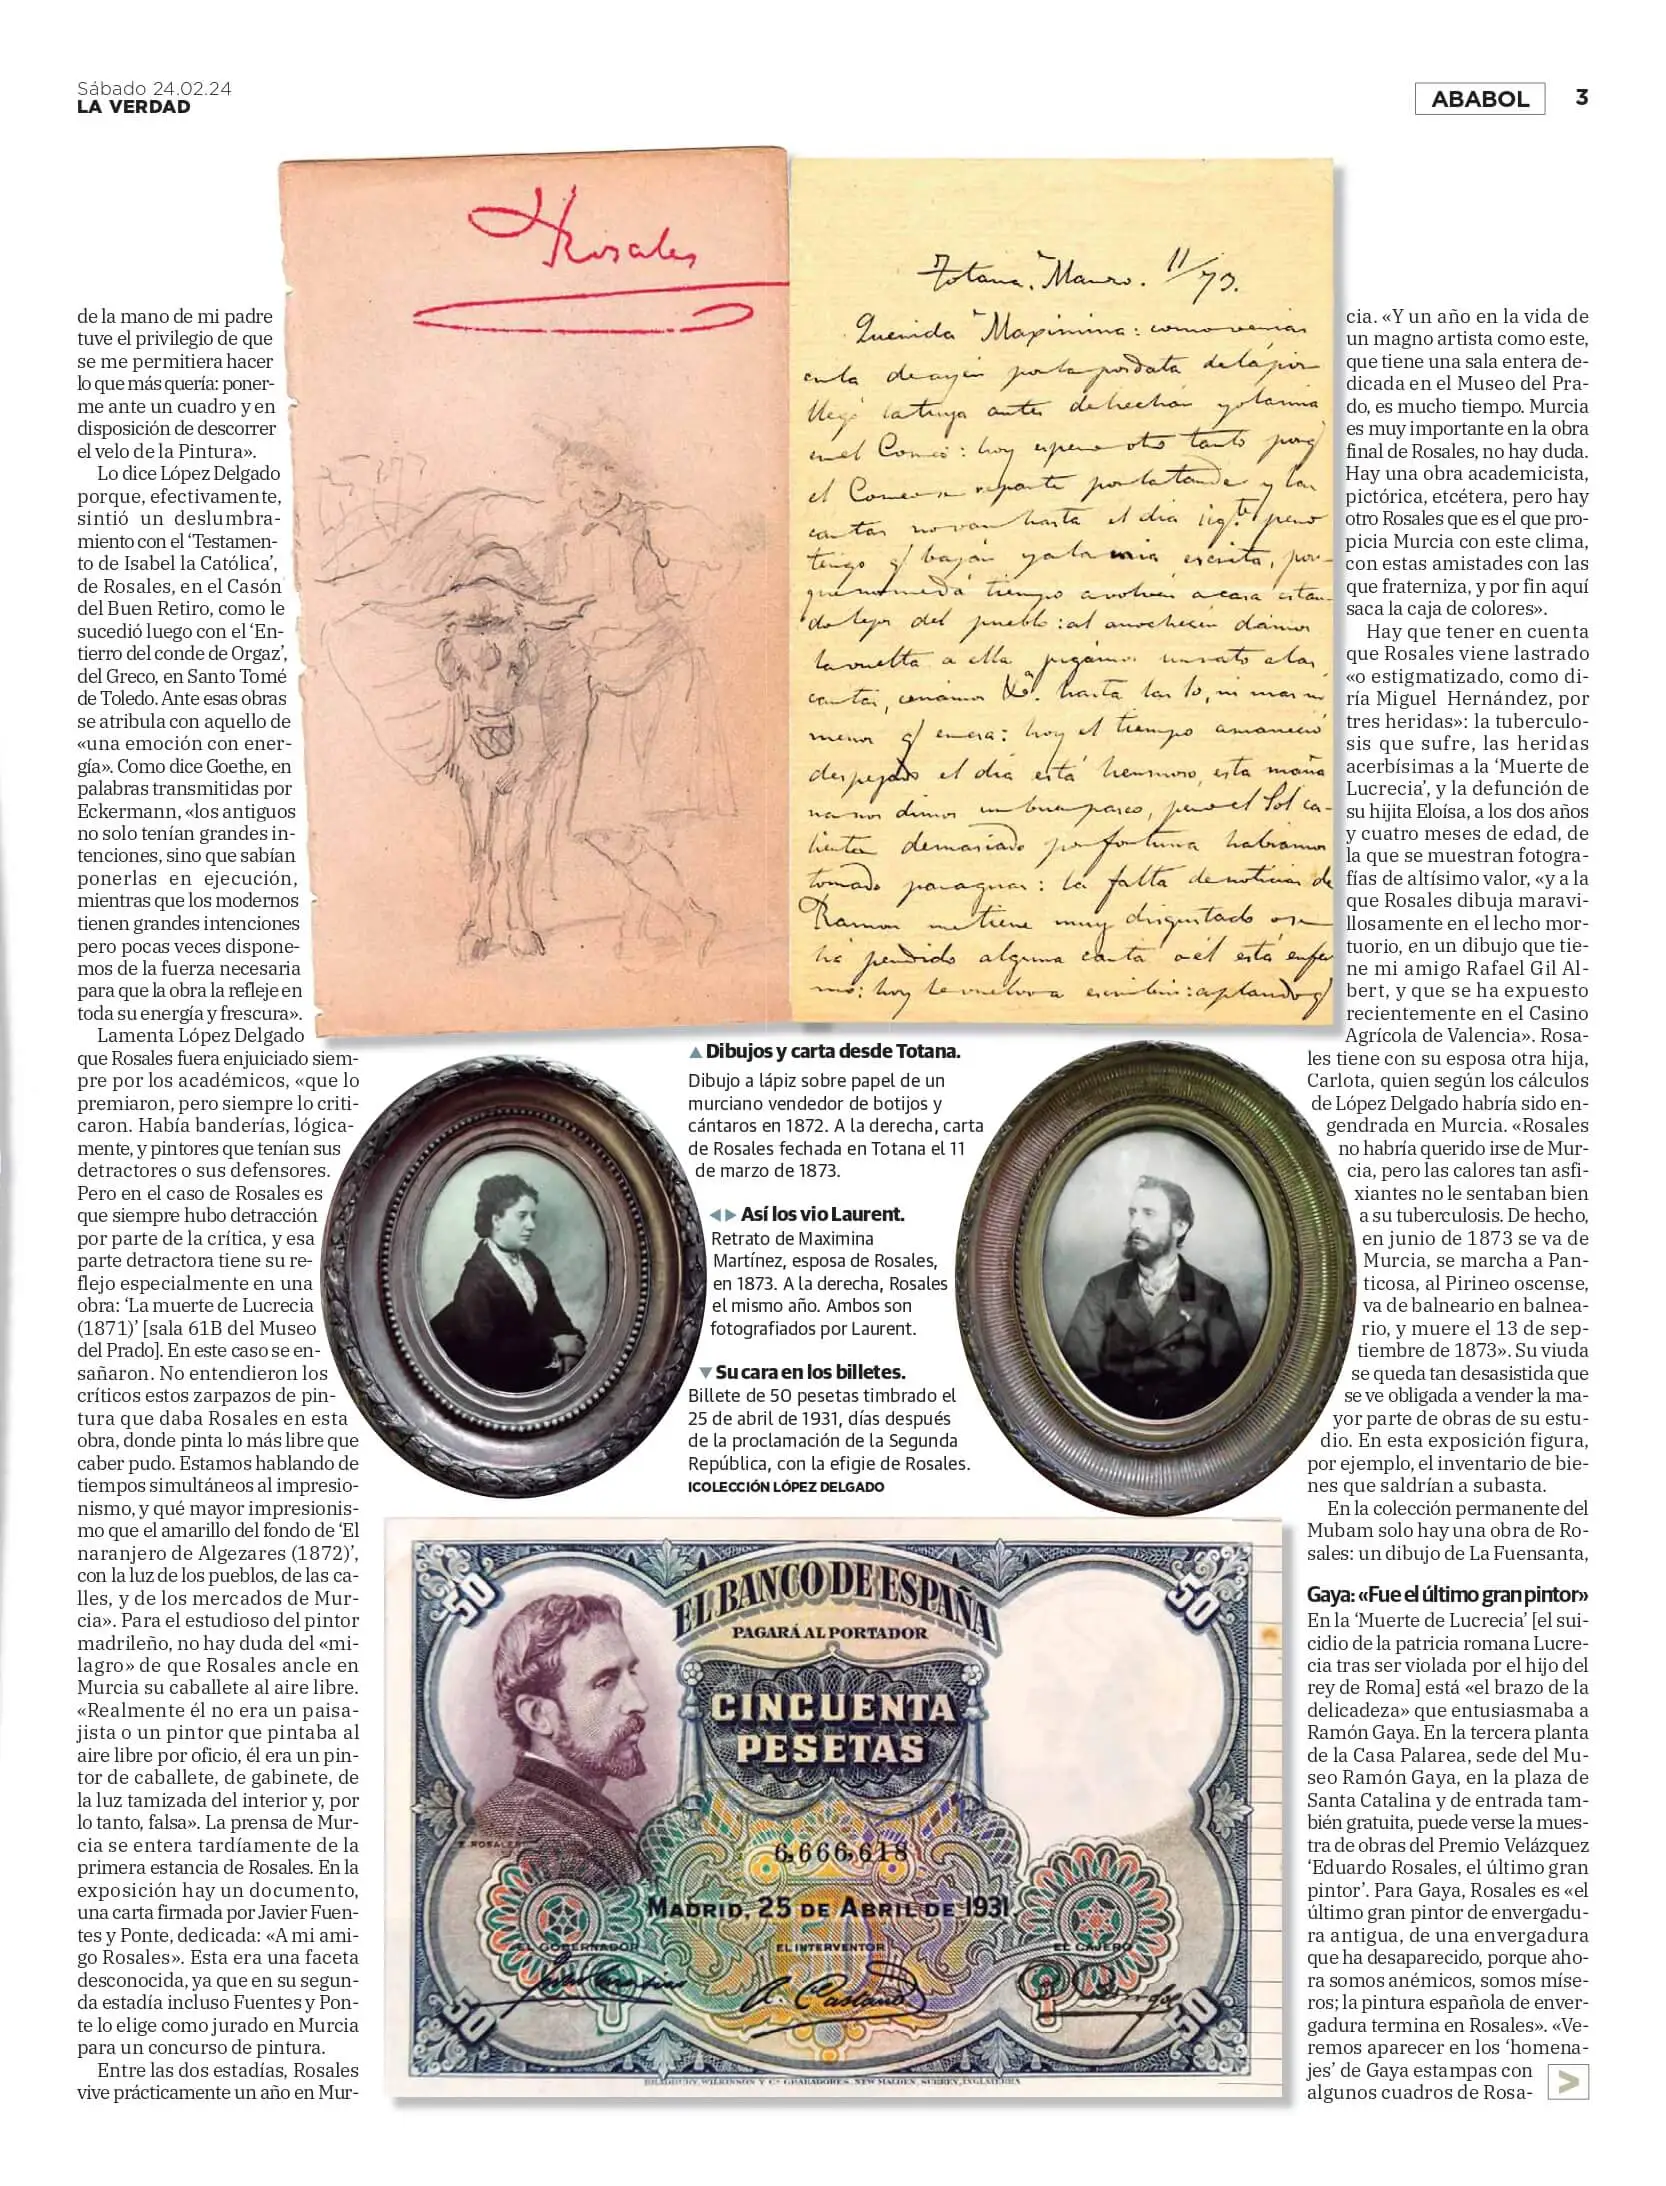 Sábado 24.02.24
LA VERDAD
ABABOL
3
de la mano de mi padre
tuve el privilegio de que
se me permitiera hacer
lo que más quería: poner-
me ante un cuadro y en
disposición de descorrer
el velo de la Pintura».
Lo dice López Delgado
porque, efectivamente,
sintió un deslumbra-
miento con el ‘Testamen-
to de Isabel la Católica’,
de Rosales, en el Casón
del Buen Retiro, como le
sucedió luego con el ‘En-
tierro del conde de Orgaz’,
del Greco, en Santo Tomé
de Toledo. Ante esas obras
se atribula con aquello de
«una emoción con ener-
gía». Como dice Goethe, en
palabras transmitidas por
Eckermann, «los antiguos
no solo tenían grandes in-
tenciones, sino que sabían
ponerlas en ejecución,
mientras que los modernos
tienen grandes intenciones
pero pocas veces dispone-
mos de la fuerza necesaria
para que la obra la refleje en
toda su energía y frescura».
Lamenta López Delgado
que Rosales fuera enjuiciado siem-
pre por los académicos, «que lo
premiaron, pero siempre lo criti-
caron. Había banderías, lógica-
mente, y pintores que tenían sus
detractores o sus defensores.
Pero en el caso de Rosales es
que siempre hubo detracción
por parte de la crítica, y esa
parte detractora tiene su re-
flejo especialmente en una
obra: ‘La muerte de Lucrecia
(1871)’ [sala 61B del Museo
del Prado]. En este caso se en-
sañaron. No entendieron los
críticos estos zarpazos de pin-
tura que daba Rosales en esta
obra, donde pinta lo más libre que
caber pudo. Estamos hablando de
tiempos simultáneos al impresio-
nismo, y qué mayor impresionis-
mo que el amarillo del fondo de ‘El
naranjero de Algezares (1872)’,
con la luz de los pueblos, de las ca-
lles, y de los mercados de Mur-
cia». Para el estudioso del pintor
madrileño, no hay duda del «mi-
lagro» de que Rosales ancle en
Murcia su caballete al aire libre.
«Realmente él no era un paisa-
jista o un pintor que pintaba al
aire libre por oficio, él era un pin-
tor de caballete, de gabinete, de
la luz tamizada del interior y, por
lo tanto, falsa». La prensa de Mur-
cia se entera tardíamente de la
primera estancia de Rosales. En la
exposición hay un documento,
una carta firmada por Javier Fuen-
tes y Ponte, dedicada: «A mi ami-
go Rosales». Esta era una faceta
desconocida, ya que en su segun-
da estadía incluso Fuentes y Pon-
te lo elige como jurado en Murcia
para un concurso de pintura.
Entre las dos estadías, Rosales
vive prácticamente un año en Mur-
Rosales
Totana. Marzo. 11/73.
Querida Maximina: como venias
en la de ayer por la posdata de la por
llegó la tuya antes
en el Correo: hoy espero otro tanto porq
el Correo se reparte por la tarde y las
cartas no van hasta el dia sigte. pero
tengo q bajar ya la mia escrita, por-
que no me dá tiempo a volver a casa estan-
do lejos del pueblo: al anochecer damos
la vuelta a ella jugamos un rato a las
cartas, cenamos &a. hasta las 10, ni mas ni
menos q en esa: hoy el tiempo amaneció
despejado el dia está hermoso, esta maña
na nos dimos un buen paseo, pero el Sol ca-
lienta demasiado por fortuna habiamos
tomado paraguas: la falta de noticias de
Ramon me tiene muy disgustado o se
há perdido alguna carta o él está enfer
mo: hoy le vuelvo a escribir:
▲ Dibujos y carta desde Totana.
Dibujo a lápiz sobre papel de un
murciano vendedor de botijos y
cántaros en 1872. A la derecha, carta
de Rosales fechada en Totana el 11
de marzo de 1873.
◄► Así los vio Laurent.
Retrato de Maximina
Martínez, esposa de Rosales,
en 1873. A la derecha, Rosales
el mismo año. Ambos son
fotografiados por Laurent.
▼ Su cara en los billetes.
Billete de 50 pesetas timbrado el
25 de abril de 1931, días después
de la proclamación de la Segunda
República, con la efigie de Rosales.
ICOLECCIÓN LÓPEZ DELGADO
50
50
EL BANCO DE ESPAÑA
PAGARÁ AL PORTADOR
CINCUENTA
PESETAS
E. ROSALES
6,666,618
MADRID, 25 DE ABRIL DE 1931.
EL GOBERNADOR
EL INTERVENTOR
EL CAJERO
50
50
BRADBURY, WILKINSON Y Cª. GRABADORES, NEW MALDEN, SURREY, INGLATERRA
cia. «Y un año en la vida de
un magno artista como este,
que tiene una sala entera de-
dicada en el Museo del Pra-
do, es mucho tiempo. Murcia
es muy importante en la obra
final de Rosales, no hay duda.
Hay una obra academicista,
pictórica, etcétera, pero hay
otro Rosales que es el que pro-
picia Murcia con este clima,
con estas amistades con las
que fraterniza, y por fin aquí
saca la caja de colores».
Hay que tener en cuenta
que Rosales viene lastrado
«o estigmatizado, como di-
ría Miguel Hernández, por
tres heridas»: la tuberculo-
sis que sufre, las heridas
acerbísimas a la ‘Muerte de
Lucrecia’, y la defunción de
su hijita Eloísa, a los dos años
y cuatro meses de edad, de
la que se muestran fotogra-
fías de altísimo valor, «y a la
que Rosales dibuja maravi-
llosamente en el lecho mor-
tuorio, en un dibujo que tie-
ne mi amigo Rafael Gil Al-
bert, y que se ha expuesto
recientemente en el Casino
Agrícola de Valencia». Rosa-
les tiene con su esposa otra hija,
Carlota, quien según los cálculos
de López Delgado habría sido en-
gendrada en Murcia. «Rosales
no habría querido irse de Mur-
cia, pero las calores tan asfi-
xiantes no le sentaban bien
a su tuberculosis. De hecho,
en junio de 1873 se va de
Murcia, se marcha a Pan-
ticosa, al Pirineo oscense,
va de balneario en balnea-
rio, y muere el 13 de sep-
tiembre de 1873». Su viuda
se queda tan desasistida que
se ve obligada a vender la ma-
yor parte de obras de su estu-
dio. En esta exposición figura,
por ejemplo, el inventario de bie-
nes que saldrían a subasta.
En la colección permanente del
Mubam solo hay una obra de Ro-
sales: un dibujo de La Fuensanta,
Gaya: «Fue el último gran pintor»
En la ‘Muerte de Lucrecia’ [el sui-
cidio de la patricia romana Lucre-
cia tras ser violada por el hijo del
rey de Roma] está «el brazo de la
delicadeza» que entusiasmaba a
Ramón Gaya. En la tercera planta
de la Casa Palarea, sede del Mu-
seo Ramón Gaya, en la plaza de
Santa Catalina y de entrada tam-
bién gratuita, puede verse la mues-
tra de obras del Premio Velázquez
‘Eduardo Rosales, el último gran
pintor’. Para Gaya, Rosales es «el
último gran pintor de envergadu-
ra antigua, de una envergadura
que ha desaparecido, porque aho-
ra somos anémicos, somos míse-
ros; la pintura española de enver-
gadura termina en Rosales». «Ve-
remos aparecer en los ‘homena-
jes’ de Gaya estampas con
algunos cuadros de Rosa-
>